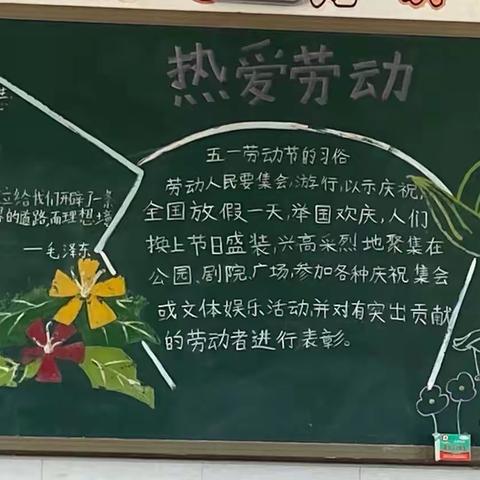 热爱劳动
五一劳动节的习俗
劳动人民要集会,游行,以示庆祝,
全国放假一天,举国欢庆,人们
按上节日盛装,兴高采烈地聚集在
公园、剧院、广场,参加各种庆祝集会
或文体娱乐活动,并对有突出贡献
的劳动者进行表彰。
位给我们开辟了一条
的道路,而理想境
——毛泽东